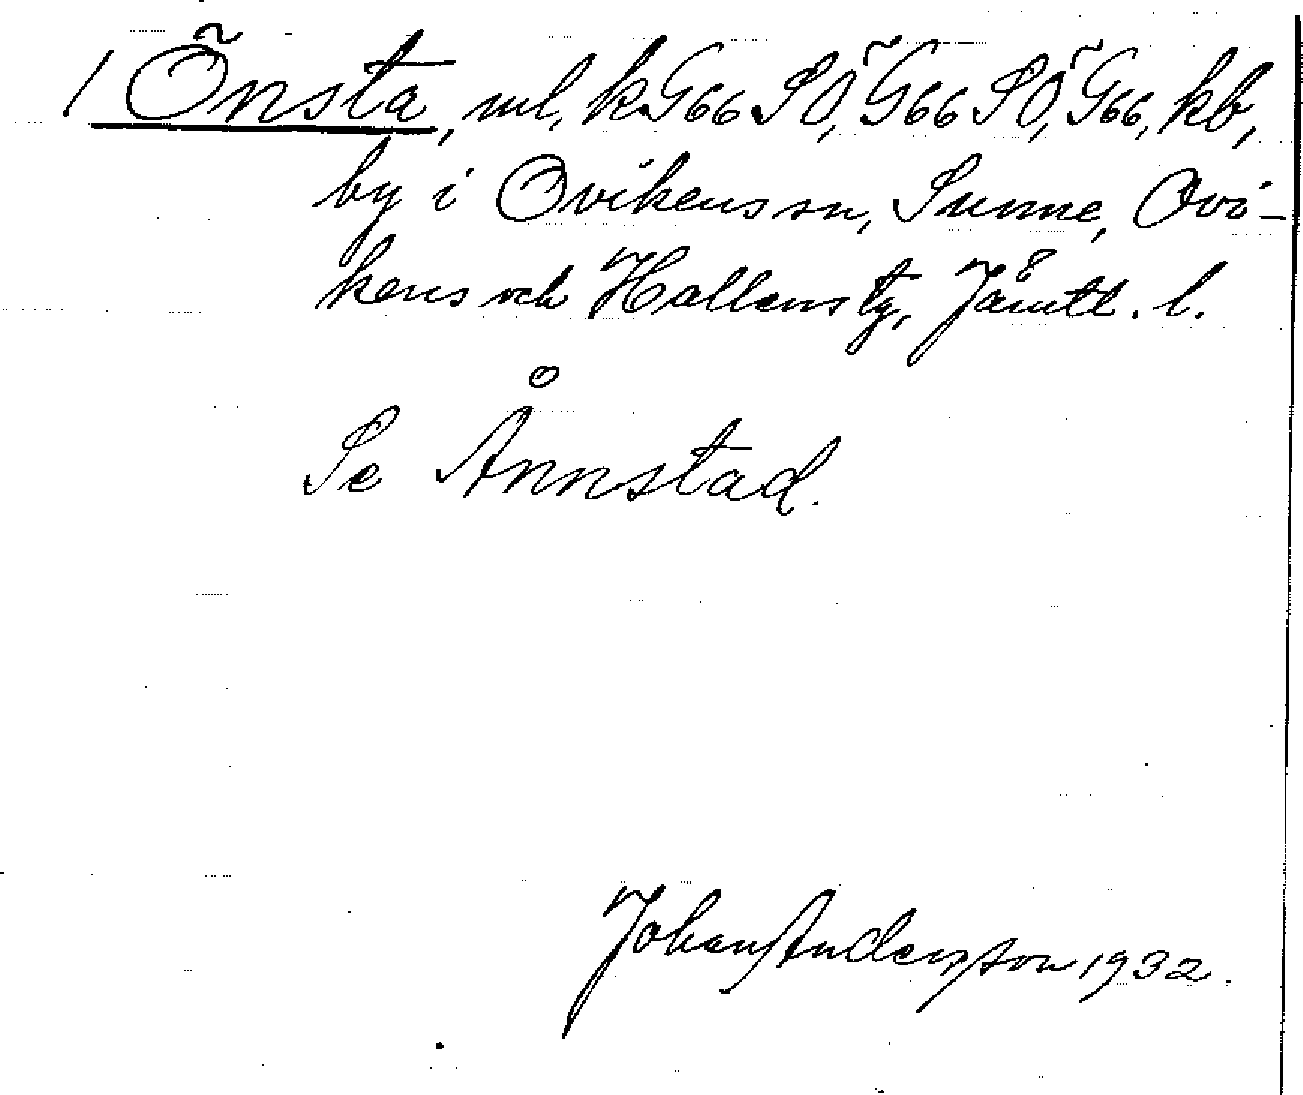 1 Õnsta, ml, k G66 SO, G̃66 SO, G̃66, kb,
by i Ovikens sn, Sunne, Ovi-
kens och Hallens tg, Jämtl. l.
Se Ånnstad.
Johan Andersson 1932.